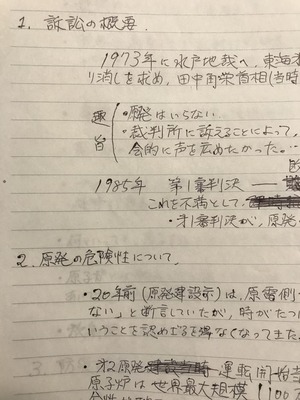 1. 訴訟の概要.
1973年に水戸地裁へ、東海
り消しを求め、田中角栄首相(当時
趣旨
・原発はいらない
・裁判所に訴えることによって、
会的に声を広めたかった。…
1985年 第1審判決 ——
これを不満として、
・オ1審判決が、原発
2. 原発の危険性について.
・20年前(原発建設前)は、原電側
ない」と断言していたが、時がたつ
いうことを認めざるを得なくなってきた
3.
・オ2原発 運転開始当
原子炉は 世界最大規模 (100万